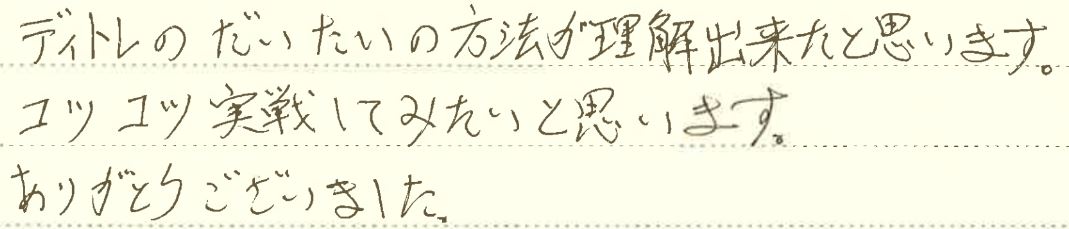 デイトレのだいたいの方法が理解出来たと思います。
コツコツ実戦してみたいと思います。
ありがとうございました。